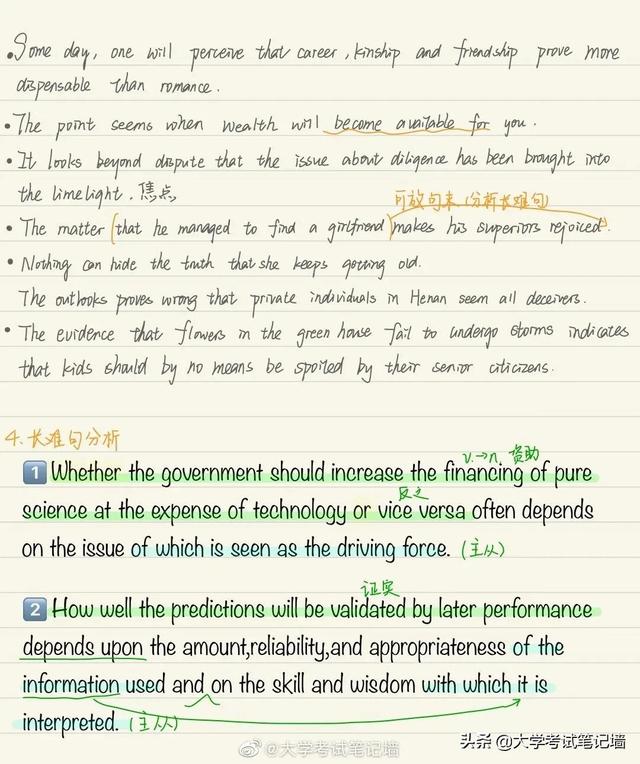 • Some day, one will perceive that career, kinship and friendship prove more
dispensable than romance.
• The point seems when wealth will become available for you.
• It looks beyond dispute that the issue about diligence has been brought into
the limelight. 焦点
可放句末 (分析长难句)
• The matter (that he managed to find a girlfriend) makes his superiors rejoiced.
• Nothing can hide the truth that she keeps getting old.
The outlooks proves wrong that private individuals in Henan seem all deceivers.
• The evidence that flowers in the green house fail to undergo storms indicates
that kids should by no means be spoiled by their senior citicizens.
4. 长难句分析
v.→n. 资助
1 Whether the government should increase the financing of pure
反之
science at the expense of technology or vice versa often depends
on the issue of which is seen as the driving force. (主从)
证实
2 How well the predictions will be validated by later performance
depends upon the amount,reliability,and appropriateness of the
information used and on the skill and wisdom with which it is
interpreted. (主从)
@大学考试笔记墙
头条 @大学考试笔记墙